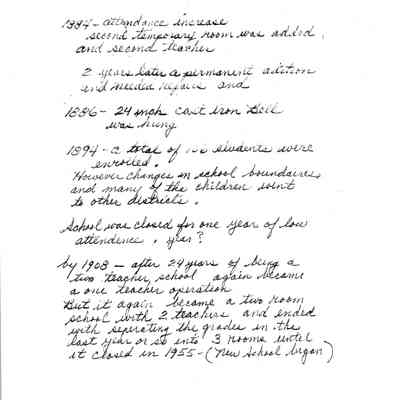 1884 - attendance increase
second temporary room was added,
and second teacher
2 years later a permanent adition
and needed repairs and
1886 - 24 inch cast iron Bell
was hung
1894 - a total of students were
enrolled.
However changes in school boundaires
and many of the children went
to other districts.
School was closed for one year of low
attendence. year?
by 1908 - after 24 years of being a
two teacher school again became
a one teacher operation
But it again became a two room
school with 2 teachers and ended
with seperating the grades in the
last year or so into 3 rooms until
it closed in 1955 - (New School began)